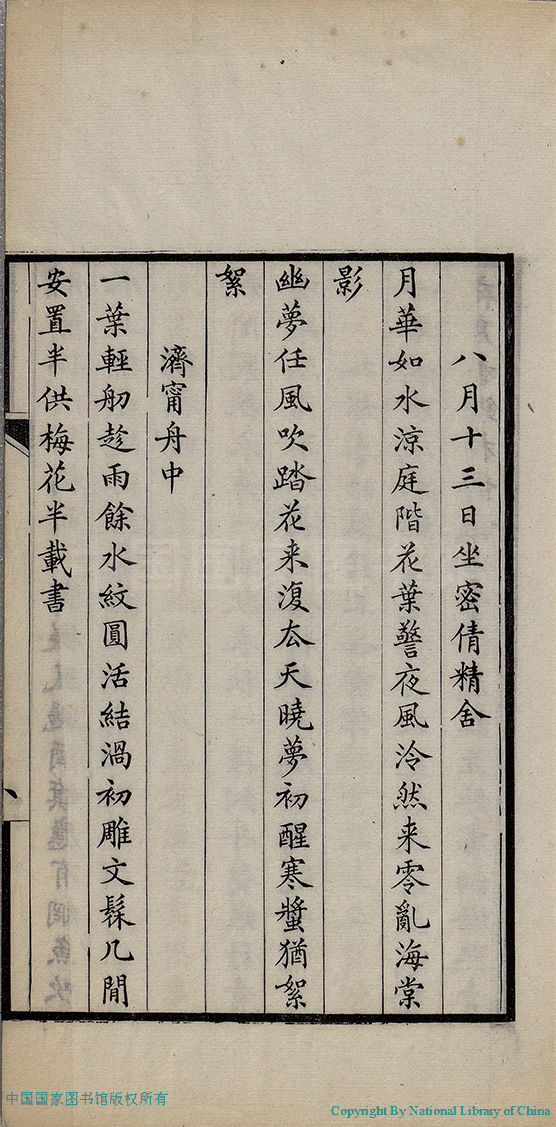 八月十三日坐密倩精舍
月華如水涼庭階花葉警夜風泠然来零亂海棠
影
幽夢任風吹踏花来復厺天曉夢初醒寒螿猶絮
絮
濟甯舟中
一葉輕舠趁雨餘水紋圓活結渦初雕文髹几閒
安置半供梅花半載書
中国国家图书馆版权所有
Copyright By National Library of China